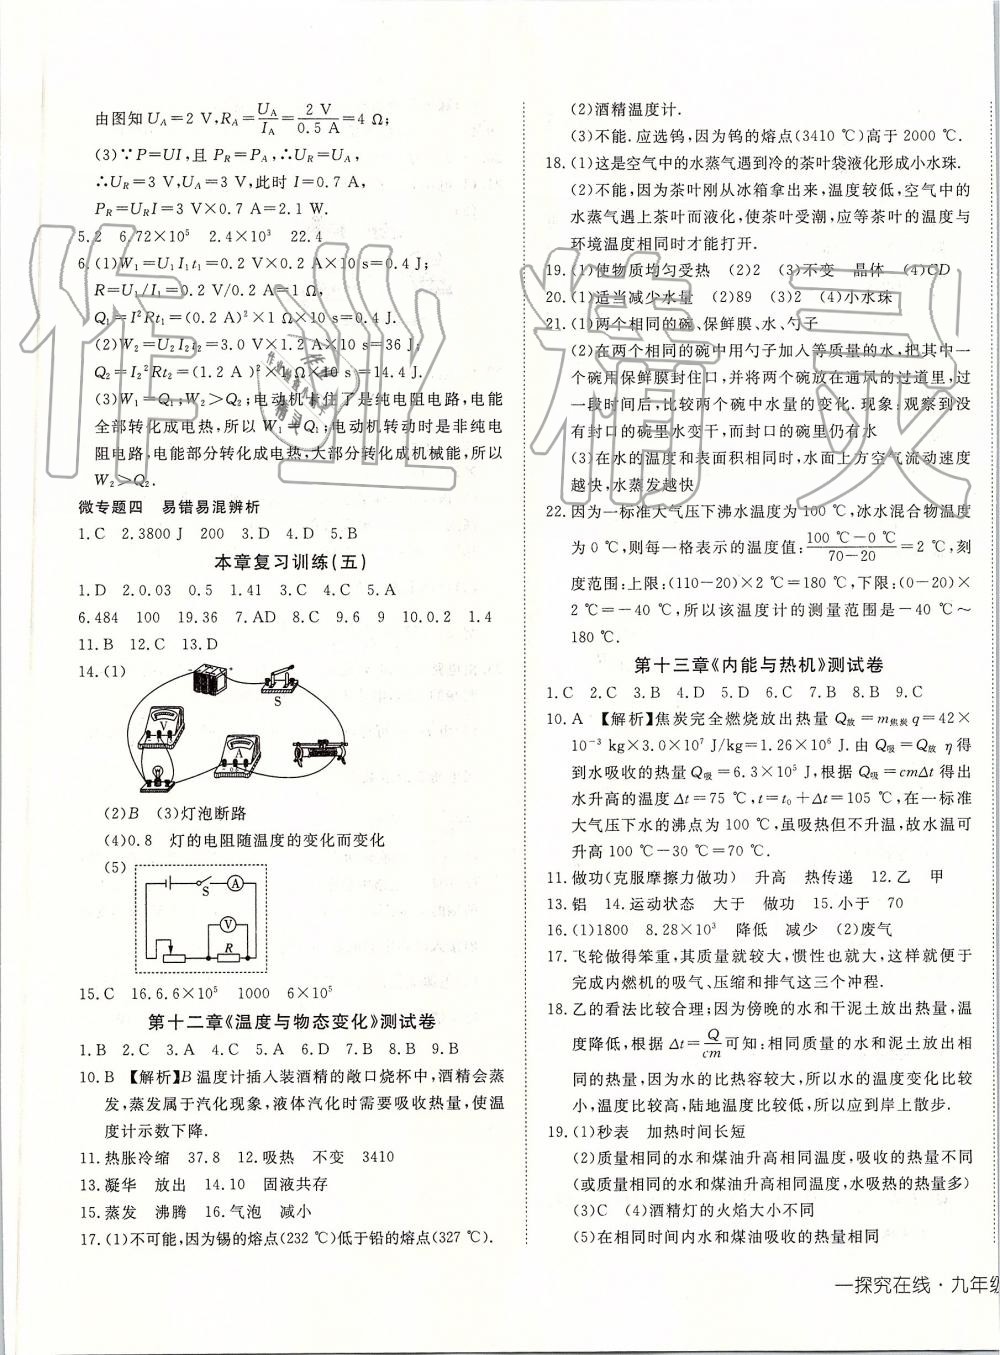 由图知 U_A=2 V,R_A=U_A/I_A=2 V/0.5 A=4 Ω;
(3)∵P=UI,且 P_R=P_A,∴U_R=U_A,
∴U_R=3 V,U_A=3 V,此时 I=0.7 A,
P_R=U_R I=3 V×0.7 A=2.1 W.
5.2 6.72×10⁵ 2.4×10³ 22.4
6.(1)W₁=U₁I₁t₁=0.2 V×0.2 A×10 s=0.4 J;
R=U₁/I₁=0.2 V/0.2 A=1 Ω;
Q₁=I₁²Rt₁=(0.2 A)²×1 Ω×10 s=0.4 J.
(2)W₂=U₂I₂t₂=3.0 V×1.2 A×10 s=36 J;
Q₂=I₂²Rt₂=(1.2 A)²×1 Ω×10 s=14.4 J.
(3)W₁=Q₁;W₂>Q₂;电动机卡住了是纯电阻电路,电能
全部转化成电热,所以 W₁=Q₁;电动机转动时是非纯电
阻电路,电能部分转化成电热,大部分转化成机械能,所以
W₂>Q₂.
微专题四 易错易混辨析
1.C 2.3800 J 200 3.D 4.D 5.B
本章复习训练(五)
1.D 2.0.03 0.5 1.41 3.C 4.C 5.A
6.484 100 19.36 7.AD 8.C 9.6 9 10.0.2 1.4
11.B 12.C 13.D
14.(1)
S
V
A
(2)B (3)灯泡断路
(4)0.8 灯的电阻随温度的变化而变化
(5)
S A
V
R
15.C 16.6.6×10⁵ 1000 6×10⁵
第十二章《温度与物态变化》测试卷
1.B 2.C 3.A 4.C 5.A 6.D 7.B 8.B 9.B
10.B 【解析】B 温度计插入装酒精的敞口烧杯中,酒精会蒸
发,蒸发属于汽化现象,液体汽化时需要吸收热量,使温
度计示数下降.
11.热胀冷缩 37.8 12.吸热 不变 3410
13.凝华 放出 14.10 固液共存
15.蒸发 沸腾 16.气泡 减小
17.(1)不可能,因为锡的熔点(232 ℃)低于铅的熔点(327 ℃).
(2)酒精温度计.
(3)不能.应选钨,因为钨的熔点(3410 ℃)高于 2000 ℃.
18.(1)这是空气中的水蒸气遇到冷的茶叶袋液化形成小水珠.
(2)不能,因为茶叶刚从冰箱拿出来,温度较低,空气中的
水蒸气遇上茶叶而液化,使茶叶受潮,应等茶叶的温度与
环境温度相同时才能打开.
19.(1)使物质均匀受热 (2)2 (3)不变 晶体 (4)CD
20.(1)适当减少水量 (2)89 (3)2 (4)小水珠
21.(1)两个相同的碗、保鲜膜、水、勺子
(2)在两个相同的碗中用勺子加入等质量的水,把其中一
个碗用保鲜膜封住口,并将两个碗放在通风的过道里,过
一段时间后,比较两个碗中水量的变化.现象:观察到没
有封口的碗里水变干,而封口的碗里仍有水
(3)在水的温度和表面积相同时,水面上方空气流动速度
越快,水蒸发越快
22.因为一标准大气压下沸水温度为 100 ℃,冰水混合物温度
为 0 ℃,则每一格表示的温度值:(100 ℃-0 ℃)/(70-20)=2 ℃,刻
度范围:上限:(110-20)×2 ℃=180 ℃,下限:(0-20)×
2 ℃=-40 ℃,所以该温度计的测量范围是-40 ℃~
180 ℃.
第十三章《内能与热机》测试卷
1.C 2.C 3.B 4.D 5.D 6.C 7.B 8.B 9.C
10.A 【解析】焦炭完全燃烧放出热量 Q放=m焦炭q=42×
10⁻³ kg×3.0×10⁷ J/kg=1.26×10⁶ J.由 Q吸=Q放 η得
到水吸收的热量 Q吸=6.3×10⁵ J,根据 Q吸=cmΔt 得出
水升高的温度 Δt=75 ℃,t=t₀+Δt=105 ℃,在一标准
大气压下水的沸点为 100 ℃,虽吸热但不升温,故水温可
升高 100 ℃-30 ℃=70 ℃.
11.做功(克服摩擦力做功) 升高 热传递 12.乙 甲
13.铝 14.运动状态 大于 做功 15.小于 70
16.(1)1800 8.28×10³ 降低 减少 (2)废气
17.飞轮做得笨重,其质量就较大,惯性也就较大,这样便于
完成内燃机的吸气、压缩和排气这三个冲程.
18.乙的看法比较合理;因为傍晚的水和干泥土放出热量,温
度降低,根据 Δt=Q/cm可知:相同质量的水和泥土放出相
同的热量,因为水的比热容较大,所以水的温度变化比较
小,温度比较高,陆地温度比较低,所以应到岸上散步.
19.(1)秒表 加热时间长短
(2)质量相同的水和煤油升高相同温度,吸收的热量不同
(或质量相同的水和煤油升高相同温度,水吸热的热量多)
(3)C (4)酒精灯的火焰大小不同
(5)在相同时间内水和煤油吸收热量相同
一探究在线·九年级
作业精灵